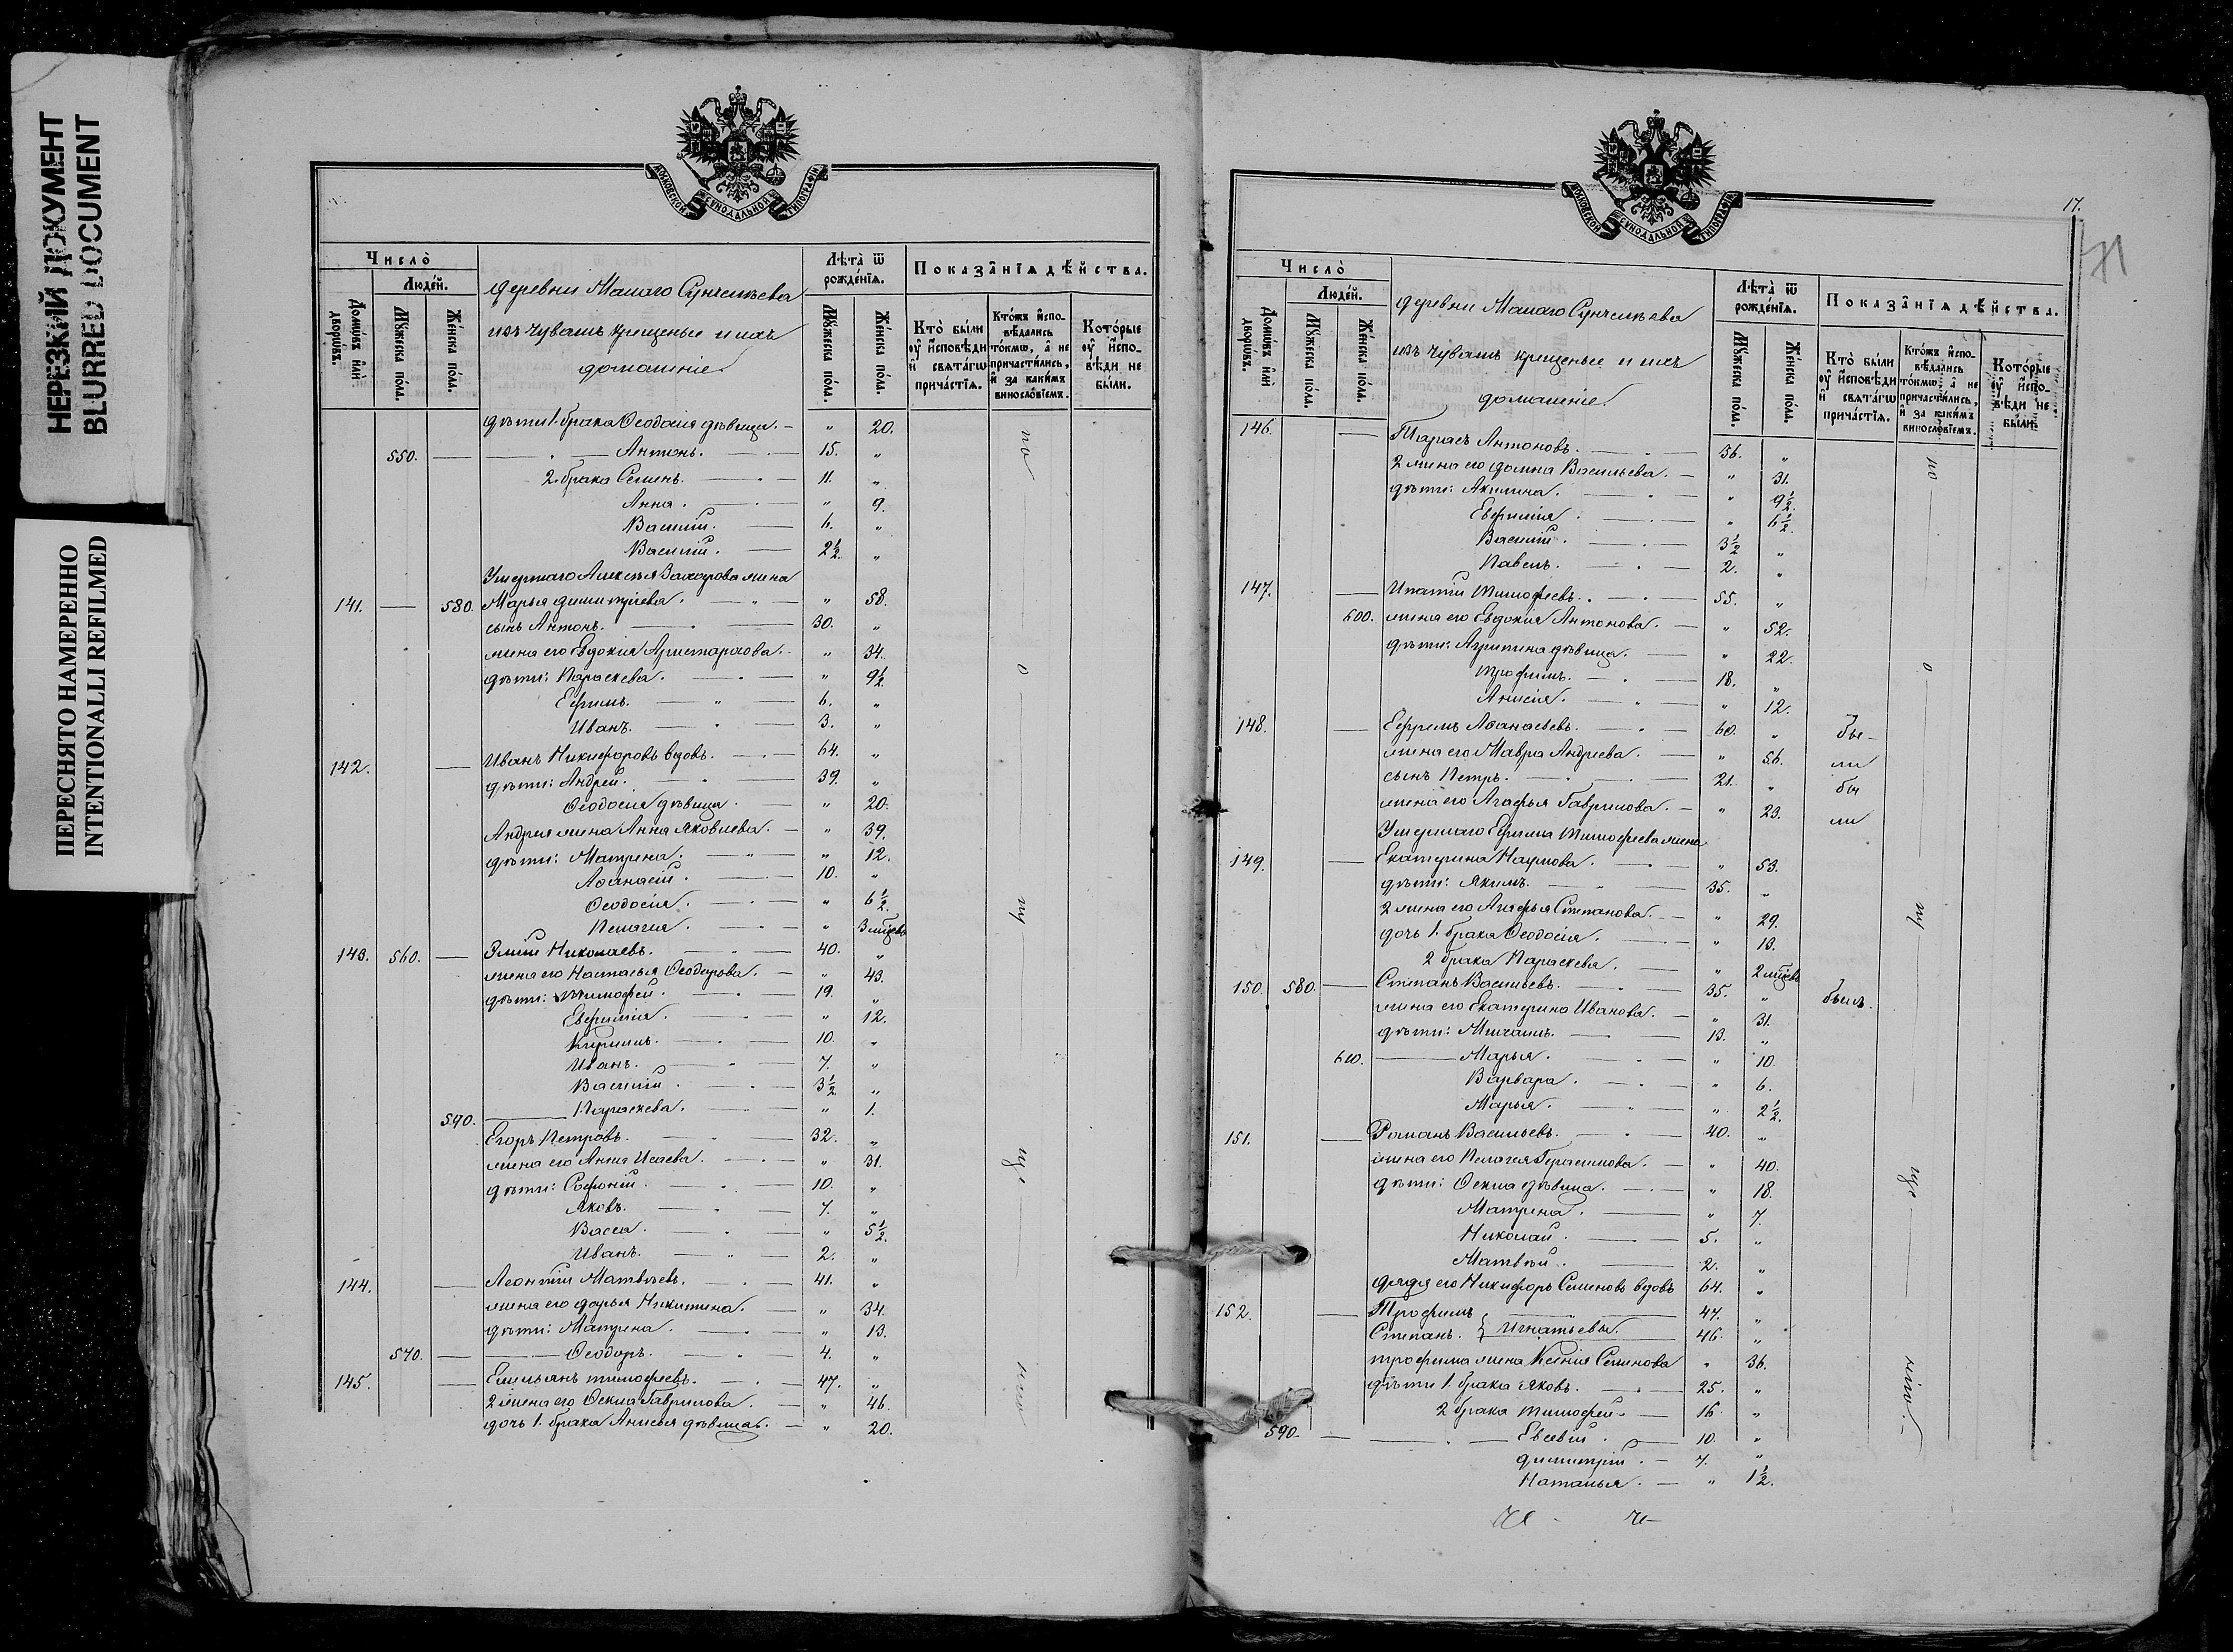 НЕРЕЗКИЙ ДОКУМЕНТ
BLURRED DOCUMENT
ПЕРЕСНЯТО НАМЕРЕННО
INTENTIONALLI REFILMED
МОСКОВСКОЙ СѴНОДАЛЬНОЙ ТИПОГРАФІИ
Число̀
Люде́й.
Домѡ́въ и҆лѝ дворѡ́въ.
Мꙋ́жеска по́ла.
Же́нска по́ла.
деревни Малаго Сунчелѣева
изъ чувашъ крещеные и ихъ
домашніе
Лѣта̀ ѿ рожде́нїѧ.
Мꙋ́жеска по́ла.
Же́нска по́ла.
Показа̂нїѧ дѣ́йства.
Кто̀ бы́ли ᲂу҆ и҆сповѣди и҆ свѧта́гѡ прича́стїѧ.
Кто́жъ и҆споवѣ́дались то́кмѡ, а҆ не причасти́лись, и҆ за каки́мъ винословїемъ.
Кото́рые ᲂу҆ и҆сповѣди не бы́ли.
дѣти 1. брака Ѳеодосія дѣвица. — " 20.
550. — Антонъ. — 15. "
2. брака Семенъ. — 11. "
Анна. — " 9.
Василій. — 6. "
Василій. — 2½ "
Умершаго Алексѣя Захарова жена
141. — 580. Марья Димитріева. — " 58.
сынъ Антонъ. — 30. "
жена его Евдокія Аристархова. " 34.
дѣти: Параскева. — " 9½
Ефимъ. — " — 6. "
Иванъ. — 3. "
142. — Иванъ Никифоровъ вдовъ. — 64. "
дѣти: Андрей. 39. "
Ѳеодосія дѣвица. — " 20.
Андрея жена Анна Яковлева. — " 39.
дѣти: Матрена. — " — " 12.
Аѳанасій. — 10. "
Ѳеодосія. — " 6½.
Пелагія. — " 3 мѣсцевъ
143. 560. — Николаевъ. 40. "
жена его Настасья Ѳеодорова. — " 43.
дѣти: Тимофей. — 19. "
Евфимія. — " 12.
Кириллъ. — 10. "
Иванъ. — 7. "
Василій. — 3½ "
590. — Параскева. — " 1.
Егоръ Петровъ. — 32. "
жена его Анна Исаева. — " 31.
дѣти: Софоній. — 10. "
Яковъ. — 7. "
Васса. — " 5½.
Иванъ. — " — 2. "
144. — Леонтій Матвѣевъ. — 41. "
жена его Дарья Никитина. — " 34.
дѣти: Матрена. — " 13.
570. — Ѳеодоръ. — 4. "
145. — Емельянъ Тимофеевъ. — 47. "
2 жена его Ѳекла Гаврилова. — " 46.
дочь 1. брака Анисья дѣвица. — " 20.
17.
71
МОСКОВСКОЙ СѴНОДАЛЬНОЙ ТИПОГРАФІИ
Число̀
Люде́й.
Домѡ́въ и҆лѝ дворѡ́въ.
Мꙋ́жеска по́ла.
Же́нска по́ла.
деревни Малаго Сунчелѣева
изъ чувашъ крещеные и ихъ
домашніе
Лѣта̀ ѿ рожде́нїѧ.
Мꙋ́жеска по́ла.
Же́нска по́ла.
Показа̂нїѧ дѣ́йства.
Кто̀ бы́ли ᲂу҆ и҆сповѣди и҆ свѧта́гѡ прича́стїѧ.
Кто́жъ и҆сповѣ́дались то́кмѡ, а҆ не причасти́лись, и҆ за каки́мъ винословїемъ.
Кото́рые ᲂу҆ и҆сповѣди не бы́ли.
146. — Тарасъ Антоновъ. — 36. "
2 жена его Домна Васильева. — " 31.
дѣти: Акилина. — " 9½.
Евфимія. — " 6½.
Василій. — 3½ "
Павелъ. — 2. "
147. — Ипатій Тимофеевъ. — 55. "
600. жена его Евдокія Антонова. — " 52.
дѣти: Агрипина дѣвица. — " 22.
Трофимъ. — 18. "
Анисія. — " 12.
148. — Ефремъ Аѳанасьевъ. — 60. " бы-
жена его Мавра Андреева. — " 56. ли
сынъ Петръ. — 21. " бы
жена его Агафья Гаврилова. — " 23. ли
Умершаго Ефима Тимофеева жена
149. — Екатерина Наумова. — " 53.
дѣти: Якимъ. — 35. "
2 жена его Агафья Степанова. — " 29.
дочь 1. брака Ѳеодосія. — " 13.
2 брака Параскева. — " 2 мѣсцевъ
150. 580. — Степанъ Васильевъ. — 35. " былъ.
жена его Екатерина Иванова. — " 31.
дѣти: Михаилъ. — 13. "
610. — Марья. — " 10.
Варвара. — " 6.
Марья. — " 2½.
151. — Романъ Васильевъ. — 40. "
жена его Пелагія Герасимова. — " 40.
дѣти: Ѳекла дѣвица. — " 18.
Матрена. — " 7.
Николай. — 5. "
Матвѣй. — 2. "
дядя его Никифоръ Семеновъ вдовъ 64. "
152. — Трофимъ — 47. "
Степанъ. } Игнатьевы. — 46. "
Трофима жена Ксенія Семенова " 36.
дѣти 1. брака Яковъ. — 25. "
2 брака Тимофей — 16. "
590. — Евсевій. — 10. "
Димитрій. — 7. "
Наталья. — " 1½.